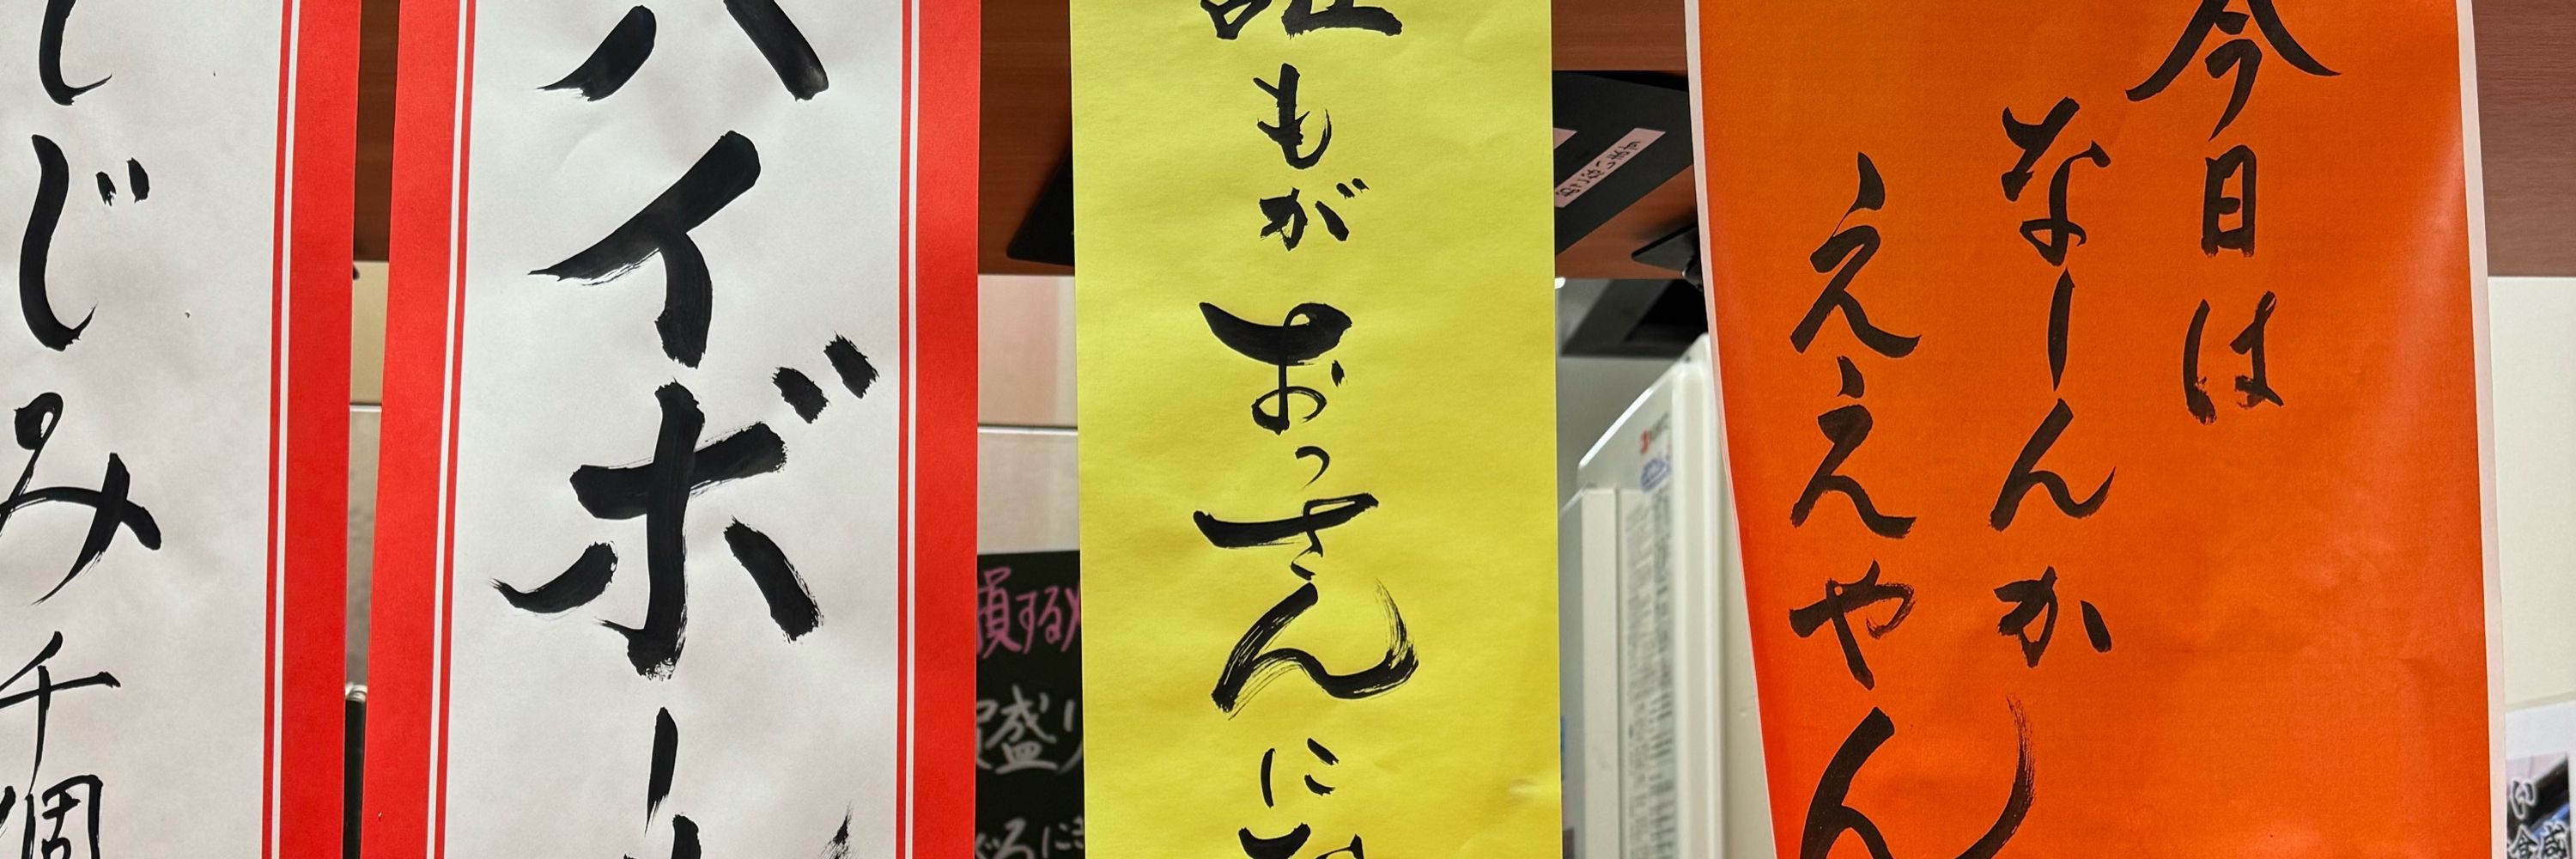 今日は
なーんか
ええやん
誰もがおっさんに
ハイボール
しじみ千個
須する
盛り
ぐろに